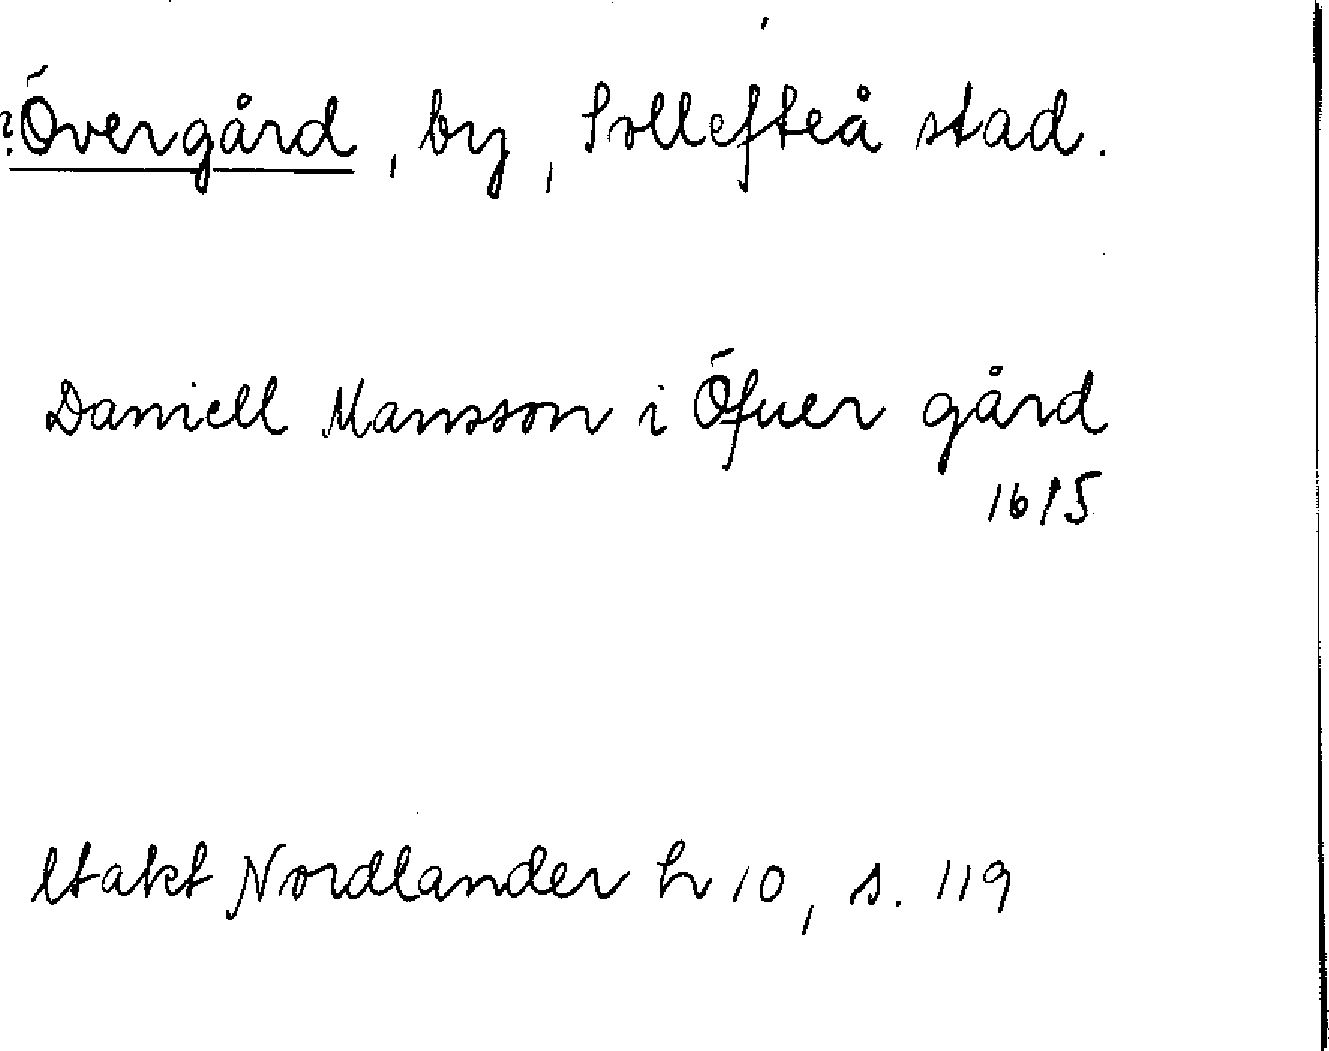 ? Övergård, by, Sollefteå stad.
Daniell Mansson i Öfuer gård
1615
Utakt Nordlander h 10, s. 119